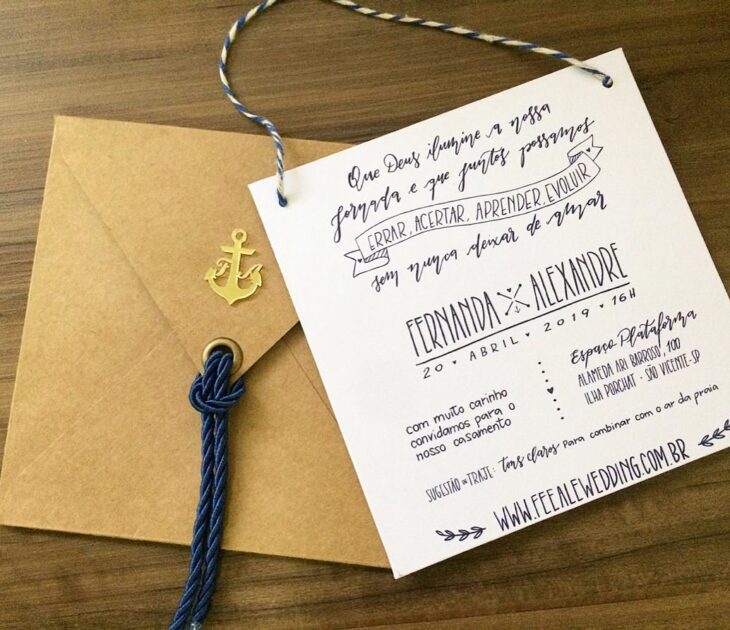 Que Deus ilumine a nossa
jornada e que juntos possamos
ERRAR, ACERTAR, APRENDER, EVOLUIR
sem nunca deixar de amar
FERNANDA ALEXANDRE
20 • ABRIL • 2019 • 16H
com muito carinho
convidamos para o
nosso casamento
Espaço Plataforma
ALAMEDA ARI BARROSO, 100
ILHA PORCHAT - SÃO VICENTE-SP
SUGESTÃO DE TRAJE: Tons claros para combinar com o ar da praia
WWW.FEEALEWEDDING.COM.BR